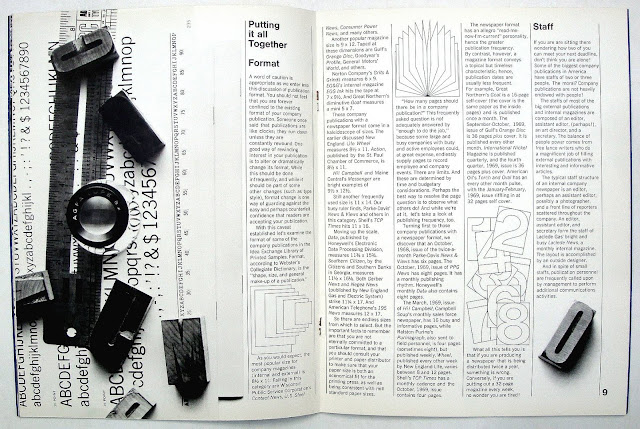 1234567890
Putting
it all
Together
Format
A word of caution is
appropriate as we enter into
this discussion of publication
format. You should not feel
that you are forever
confined to the existing
format of your company
publication. Someone once
said that publications are
like clichés; they run down
unless they are
constantly rewound. One
good way of rewinding
interest in your publication
is to alter or dramatically
change its format. While
this should be done
infrequently, and while it
should be part of some
other changes (such as type
style), format change is one
way of guarding against the
easy and perhaps counterfeit
confidence that readers are
accepting your publication.
With this caveat
established let's examine the
format of some of the
company publications in the
Ideas Exchange Library of
Printed Samples. Format,
according to Webster's
Collegiate Dictionary, is the
"shape, size, and general
make-up of a publication."
As you would expect, the
most popular size for
company magazines
(internal and external) is
8½ x 11. Falling in this
category are Wisconsin
Public Service Corporation's
Contact News, U.S. Steel
News, Consumer Power
News, and many others.
Another popular magazine
size is 9 x 12. Taped at
these dimensions are Gulf's
Orange Disc, Goodyear's
Profile, General Motors'
World, and others.
Norton Company's Grits &
Grinds measures 6 x 9.
These company
publications with a
newspaper format come in a
kaleidoscope of sizes. The
earlier discussed New
England Life Wheel
measures 8½ x 11. Action,
published by the St. Paul
Chamber of Commerce, is
8½ x 11.
Hill Campbell and Maine
Central's Messenger are
bright examples of
10¾ x 12¾.
Still another frequently
used size is 11 x 14. Our
fuely rural finds, Parke-Davis'
News & Views and others in
this category. Shell's TCP
Times hits 11 x 16.
Moving up the scale,
Data, published by
Honeywell's Electronic
Data Processing Division,
measures 11¼ x 15¼.
Southern Citizen, by the
Citizens and Southern Banks
in Georgia, measures
11¼ x 16¼. Both Gerber
News and Negea News
(published by New England
Gas and Electric System)
strike 11¼ x 17. And
American Telephone's 195
News measures 12 x 17.
So there are endless sizes
from which to select. But the
important facts to remember
are that you are not
eternally committed to a
particular format, and that
you should consult your
printer and paper distributor
to make sure that your
paper size is both an
economical fit for the
printing press, as well as
being consistent with mill
standard paper sizes.
"How many pages should
there be in a company
publication?" This frequently
asked question is not
adequately answered by
"enough to do the job,"
because some large and
busy companies with busy
and active employees could,
at great expense, endlessly
supply pages to record
employee and company
events. There are limits. And
these are determined by
time and budgetary
considerations. Perhaps the
best way to resolve the page
question is to observe what
others do? And while we're
at it, let's take a look at
publishing frequency, too.
Turning first to those
company publications with
a newspaper format, we
discover that an October,
1968, issue of the twice-a-
month Parke-Davis News &
Views has six pages. The
October, 1969, issue of PNG
News has eight pages. It has
a monthly publishing
rhythm. Honeywell's
monthly Data also contains
eight pages.
The March, 1969, issue
of Hi! Campbell, Campbell
Soup's monthly sales force
newspaper, has 16 busy and
informative pages, while
Ralston Purina's
Purinagraph, also sent to
field personnel, is four pages
(sometimes eight), but
published weekly. Wheel,
published every other week
by New England Life, varies
between 8 and 12 pages.
Shell's TCP Times has a
monthly cadence and the
October, 1969, issue
contains four pages.
The newspaper format
has an allegro "read-me-
now-I'm-current" personality,
hence the greater
publication frequency.
By contrast, however, a
magazine format conveys
a topical but timeless
characteristic. Hence,
publication dates are
usually less frequent.
For example, Great
Northern's Goat is a 16-page
self-cover (the cover is the
same paper as the inside
pages) and is published
once a month. The
September-October, 1969,
issue of Gulf's Orange Disc
is 36 pages plus cover. It is
published every other
month. International Nickel
Magazine is published
quarterly, and the fourth
quarter, 1969, issue is 36
pages plus cover. American
Oil's Torch and Oval has an
every other month pulse,
with the January-February,
1969, issue featuring
32 pages self cover.
What all this tells you is
that if you are producing
a newspaper that is being
distributed twice a year,
something is wrong.
Conversely, if you are
putting out a 32 page
magazine every week,
no wonder you are tired!
Staff
If you are sitting there
wondering how two of you
can meet your next deadline,
don't think you are alone!
Some of the biggest company
publications in America
have staffs of two or three
people. The rumor? Company
publications are not heavily
endowed with people!
The staffs of most of the
big external publications
and internal magazines are
composed of an editor,
assistant editor (perhaps!),
an art director, and a
secretary. The balance of
people power comes from
free-lance writers who do
a magnificent job of filling
external publications with
interesting and informative
articles.
The typical staff structure
of an internal company
newspaper is an editor,
perhaps an assistant editor,
possibly a photographer,
and a front line of reporters
scattered throughout the
company. An editor,
assistant editor, and
secretary form the staff of
Laclede Gas' bright and
busy Laclede News, a
monthly internal magazine.
The layout is accomplished
by an outside designer.
And in spite of small
staffs, publication personnel
are frequently called upon
by management to perform
additional communications
activities.
9